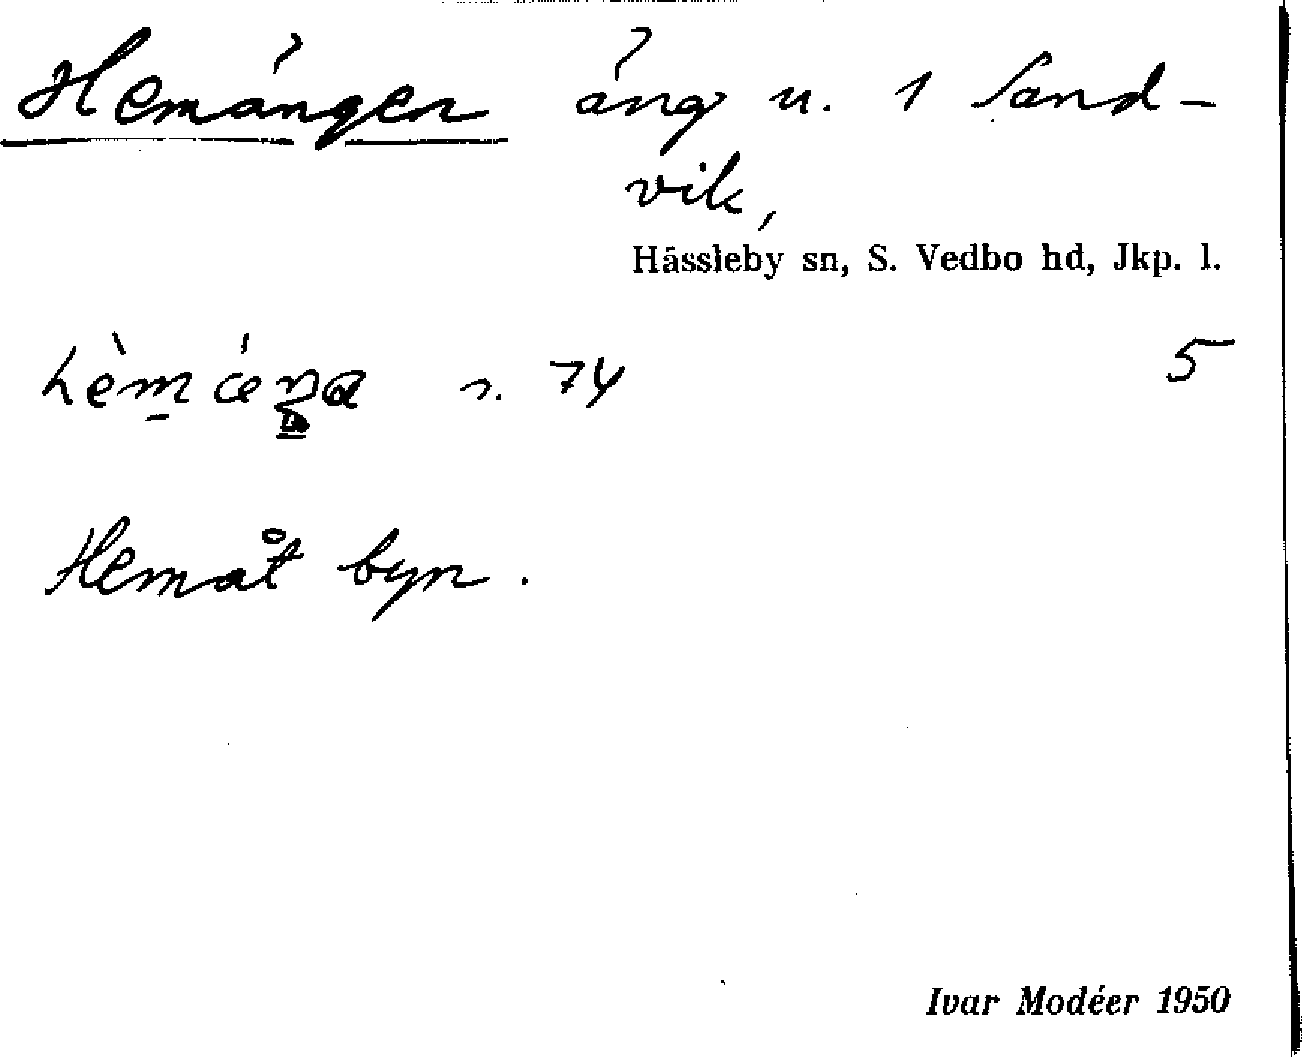 Hemängen äng u. 1 Sand-
vik,
Hässleby sn, S. Vedbo hd, Jkp. l.
n. 74 5
Hemåt byn.
Ivar Modéer 1950